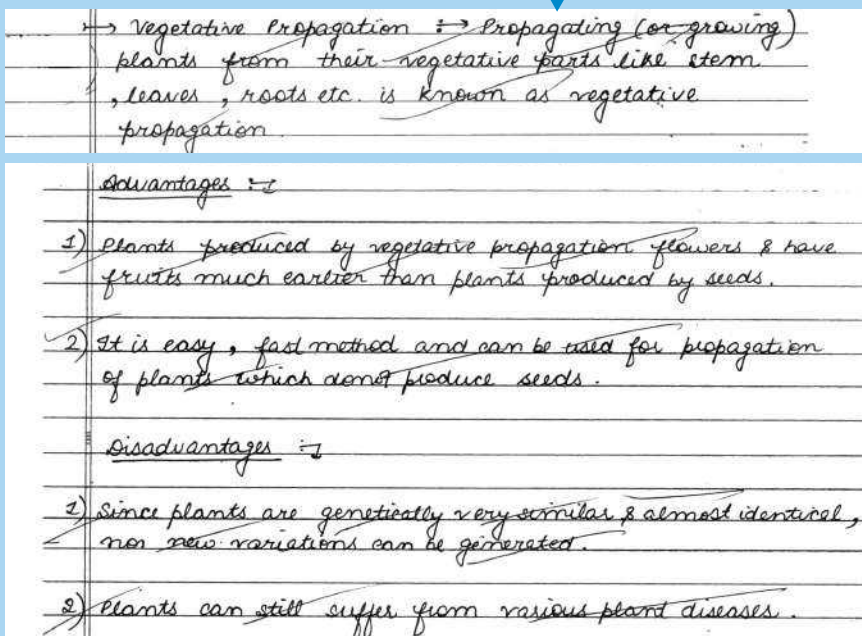 ↦ Vegetative Propagation :↦ Propagating (or growing)
plants from their vegetative parts like stem
, leaves , roots etc. is known as vegetative
propagation.
Advantages :-
1) Plants produced by vegetative propagation flowers & have
fruits much earlier than plants produced by seeds.
2) It is easy, fast method and can be used for propagation
of plants which donot produce seeds.
Disadvantages :-
1) Since plants are genetically very similar & almost identical,
non new variations can be generated.
2) Plants can still suffer from various plant diseases.